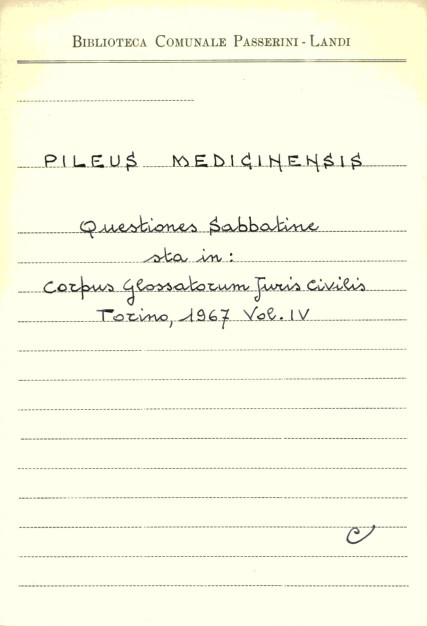 BIBLIOTECA COMUNALE PASSERINI - LANDI
PILEUS MEDICINENSIS
Questiones Sabbatine
sta in:
Corpus Glossatorum Juris Civilis
Torino, 1967 Vol. IV
C